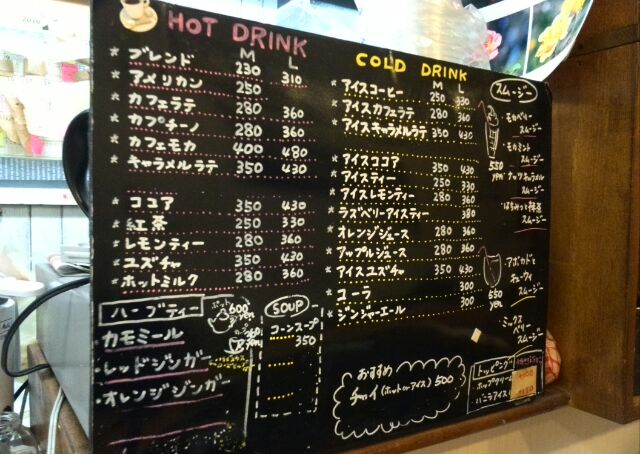 HOT DRINK
M L
* ブレンド 230 310
* アメリカン 250
* カフェラテ 280 360
* カプチーノ 280 360
* カフェモカ 400 480
* キャラメルラテ 350 430
* ココア 350 430
* 紅茶 250 330
* レモンティー 280 360
* ユズチャ 350 430
* ホットミルク 280 360
ハーブティー
ポット 600 yen
カモミール
レッドジンガー
オレンジジンガー
SOUP
コーンスープ
350
COLD DRINK
M L
* アイスコーヒー 250 330
* アイスカフェラテ 280 360
* アイスキャラメルラテ 350 430
* アイスココア 350 430
* アイスティー 250 330
* アイスレモンティー 280 360
* ラズベリーアイスティー 380
* オレンジジュース 280 360
* アップルジュース 280 360
* アイスユズチャ 350 430
* コーラ 300
* ジンジャーエール 300
おすすめ
チャイ (ホット or アイス) 500
スムージー
モカベリー
スムージー
モカミント
スムージー
ナッツキャラメル
スムージー
はちみつと抹茶
スムージー
550 yen
アボカドと
キューウィ
スムージー
ミックス
ベリー
スムージー
650 yen
トッピング
ホップクリーム
バニラアイス